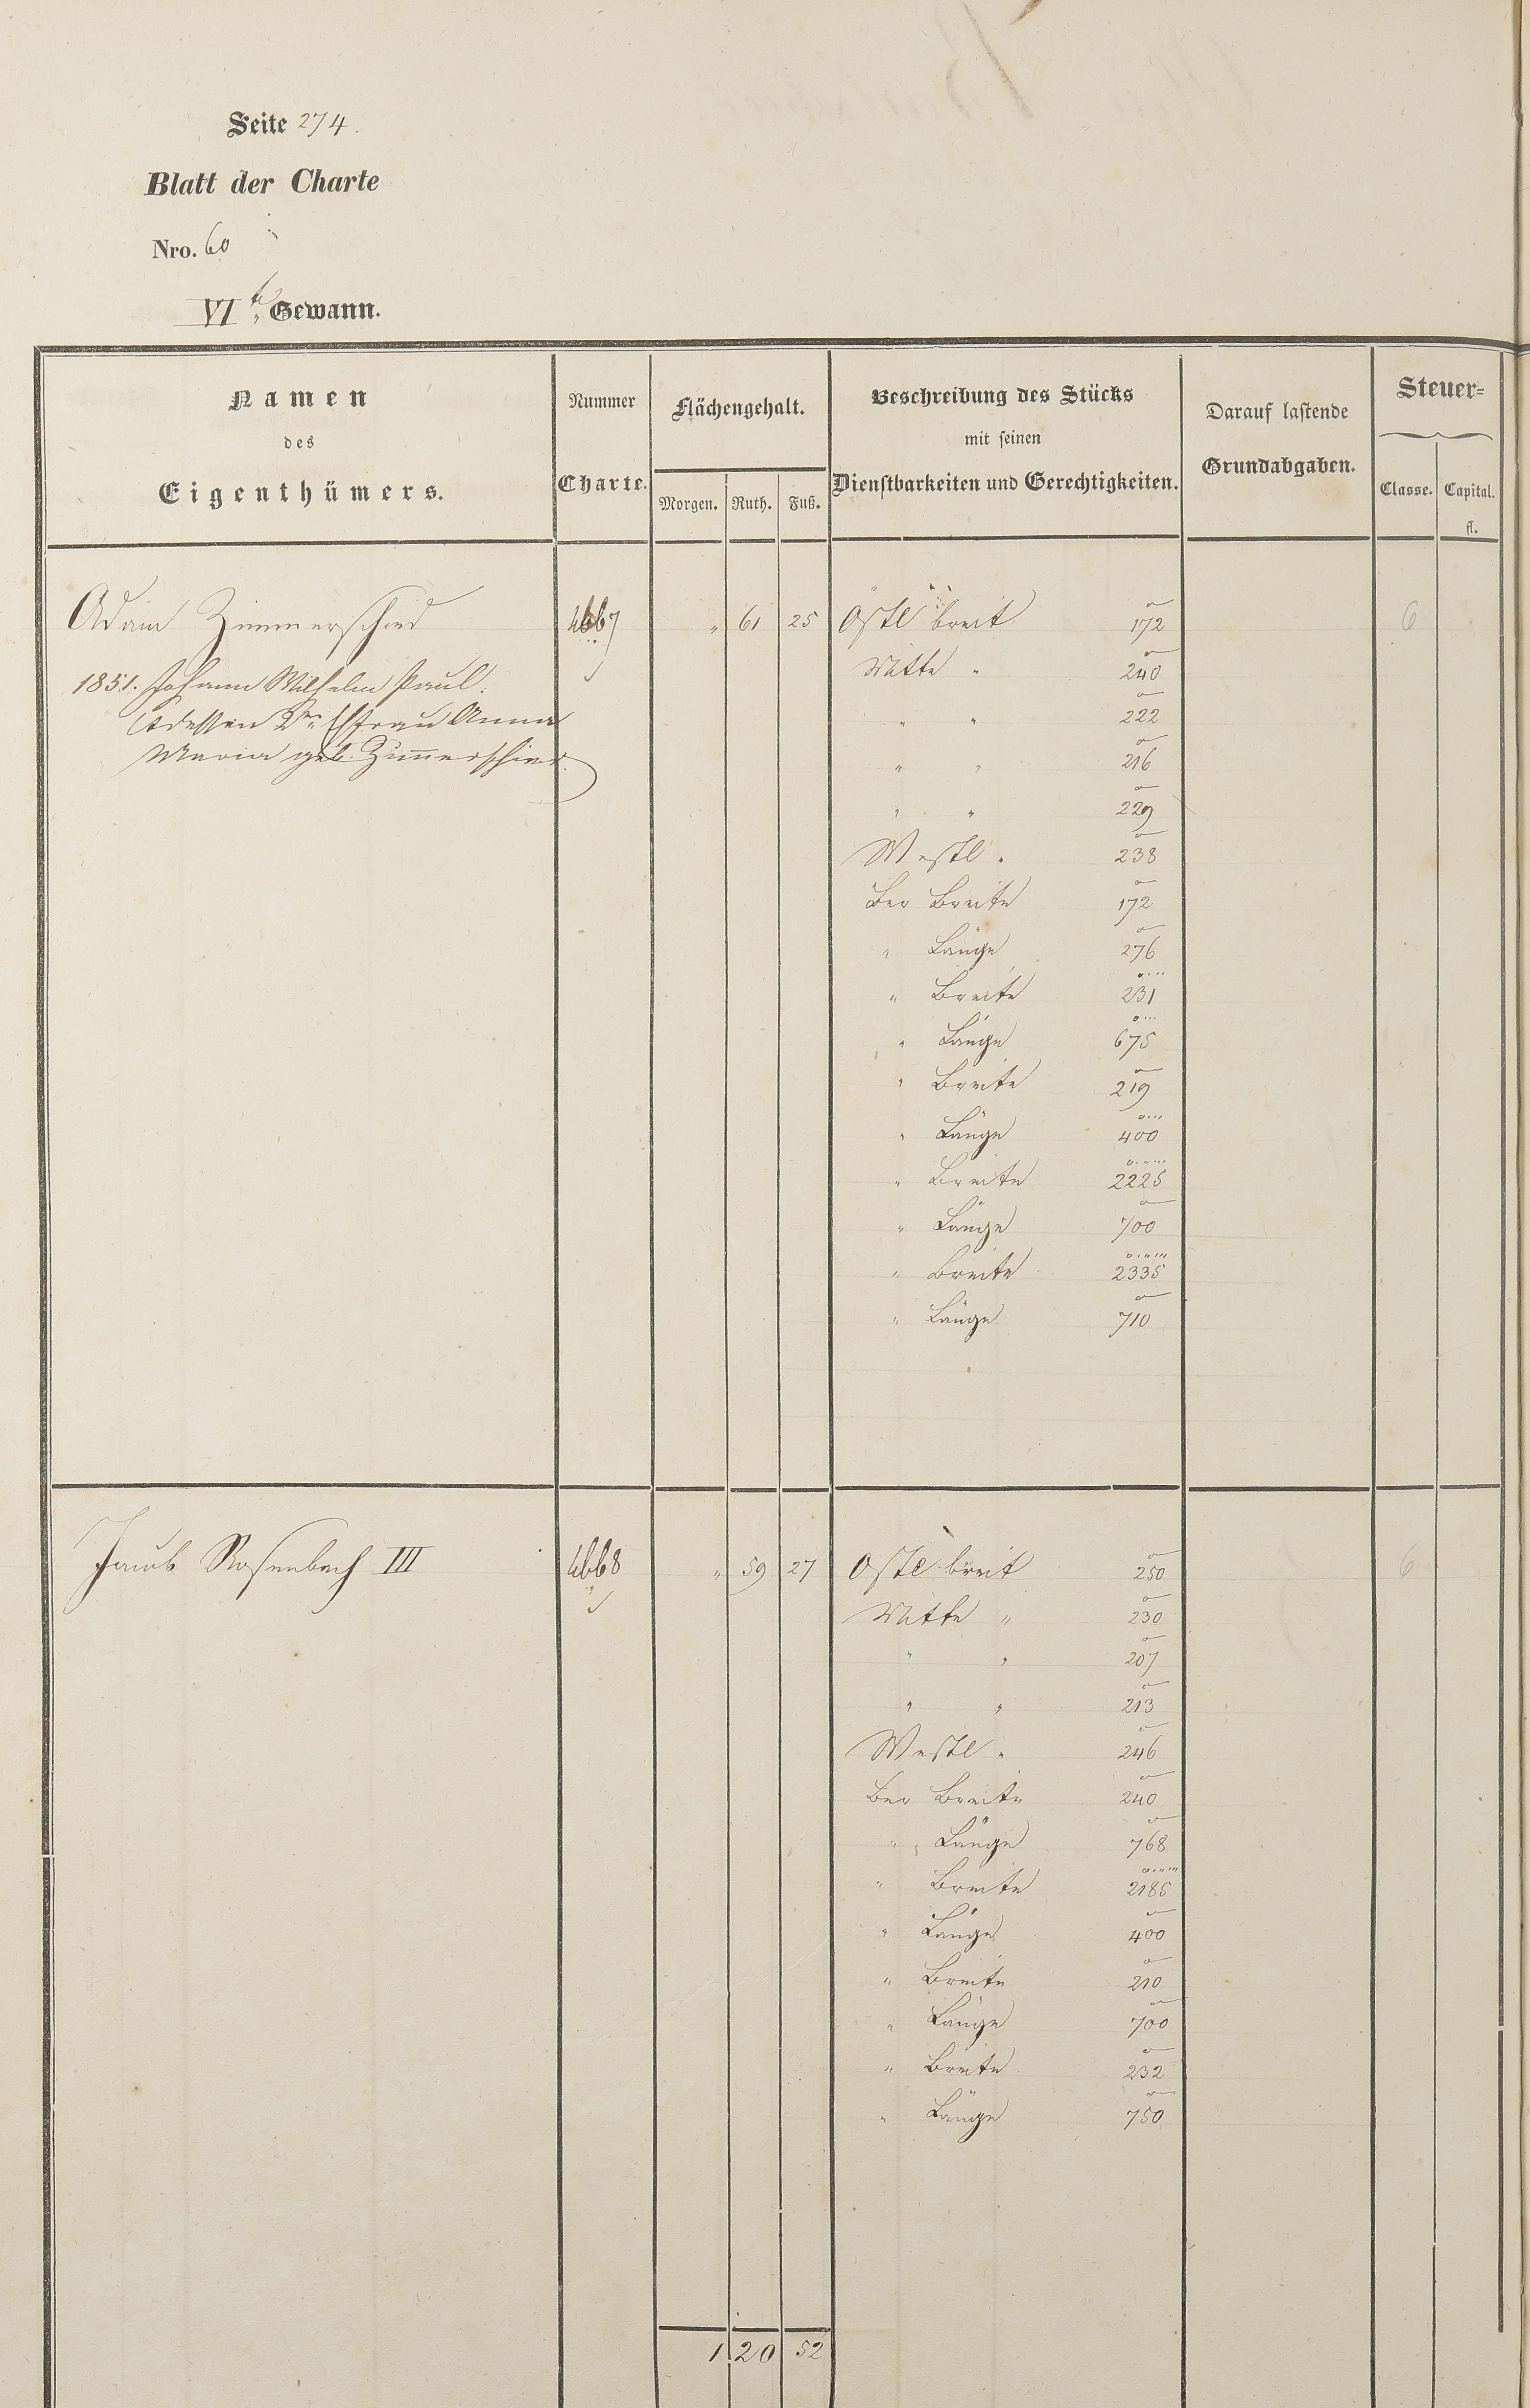 Seite 274.
Blatt der Charte
Nro. 60
VIte Gewann.
Namen
des
Eigenthümers.
Nummer
Charte.
Flächengehalt.
Morgen. Ruth. Fuß.
Beschreibung des Stücks
mit seinen
Dienstbarkeiten und Gerechtigkeiten.
Darauf lastende
Grundabgaben.
Steuer=
Classe. Capital.
fl.
Adam Zimmerschied 4667 " 61 25 Östl breit 172 6
1851. Johann Wilhelm Paul. Mitte " 240
Ehfrau Anna " " 222
Maria geb. Zimerschied. " " 216
" " 229
Westl " 238
Ber Breite 172
" Länge 276
" Breite 231
" Länge 675
" Breite 219
" Länge 400
" Breite 2225
" Länge 700
" Breite 2335
" Länge 710
Jacob Rosenbach III 4668 " 59 27 Östl breit 250 6
Mitte " 230
" " 207
" " 213
Westl " 246
Ber Breite 240
" Länge 768
" Breite 2185
" Länge 400
" Breite 210
" Länge 700
" Breite 232
" Länge 750
1 20 52